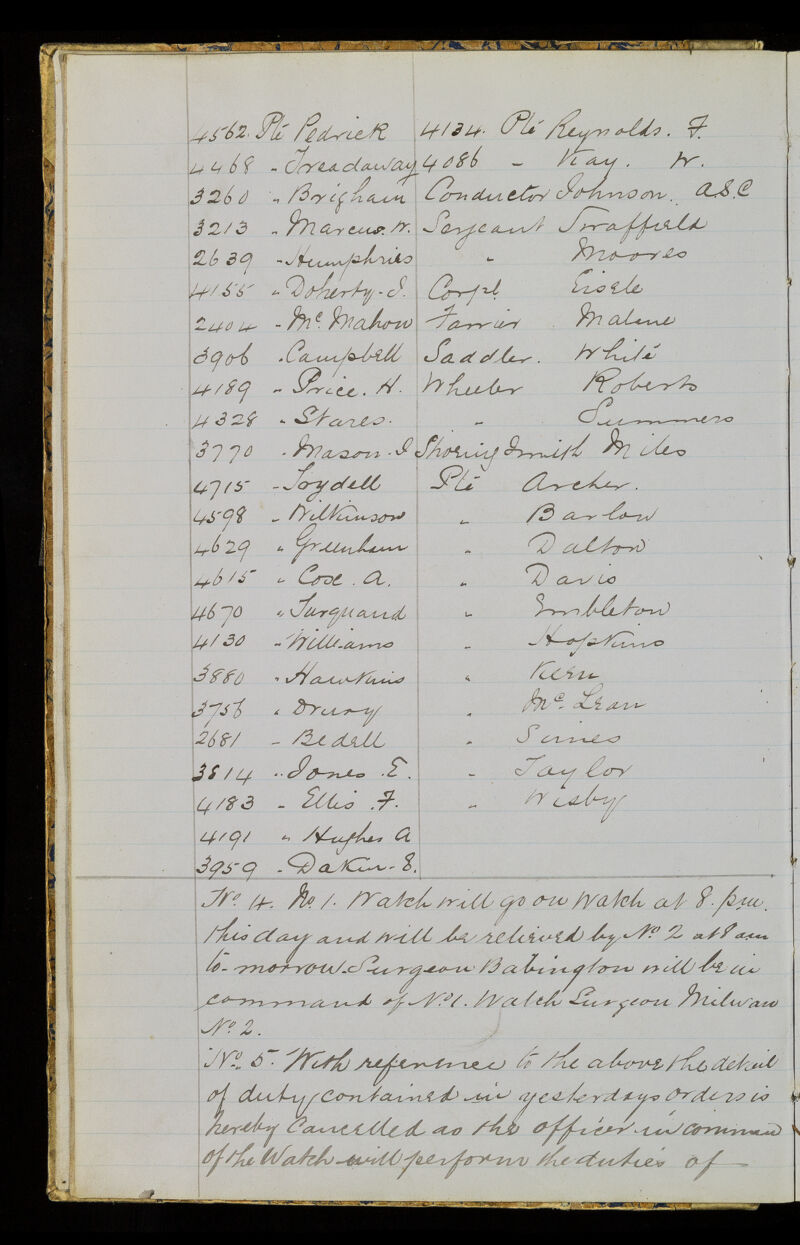 4562. Pte Pedrick 4134. Pte Reynolds. F.
4468 " Treadaway 4086 - Kay. W.
3260 " Brigham Conductor Johnson. A.S.C
3213 " Marcus. W. Sergeant Swaffield
2639 " Humphries " Moores
4155 " Doherty. J. Corpl. Eisele
2404 " Mc.Mahon Farrier Malene
3906 " Campbell Saddler. White
4189 " Price. H. Wheeler Roberts
4328 " Stares. " Summers
3770 " Mason. J Shoeing Smith Miles
4715 " Joydell Pte Archer.
4598 " Wilkinson " Barlow
4629 " Greenham " Dalton
4615 " Cox. A. " Davis
4670 " Turquand " Embleton
4130 " Williams " Hopkins
3880 " Hawkins " Kern
3756 " Drury " Mc.Lean
2681 " Bedell " Simes
3814 " Jones. E. " Taylor
4183 " Ellis. F. " Wisby
4191 " Hughes A
3959 " Dakin. E.
No. 4. No. 1. Watch will go on Watch at 8. p.m.
this day and will be relieved by No. 2 at 8 am
to-morrow. Surgeon Babington will be in
command of No. 1. Watch Surgeon Milwan
No. 2.
No. 5. With reference to the above the detail
of duty contained in yesterdays orders is
hereby Cancelled as the officer in command
of the Watch will perform the duties of